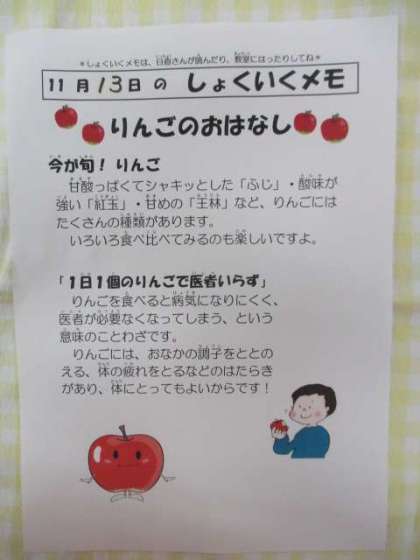 ＊しょくいくメモは、日直さんが読んだり、教室にはったりしてね＊
11月13日の しょくいくメモ
りんごのおはなし
今が旬！りんご
甘酸っぱくてシャキッとした「ふじ」・酸味が
強い「紅玉」・甘めの「王林」など、りんごには
たくさんの種類があります。
いろいろ食べ比べてみるのも楽しいですよ。
「1日1個のりんごで医者いらず」
りんごを食べると病気になりにくく、
医者が必要なくなってしまう、という
意味のことわざです。
りんごには、おなかの調子をととの
える、体の疲れをとるなどのはたらき
があり、体にとってもよいからです！